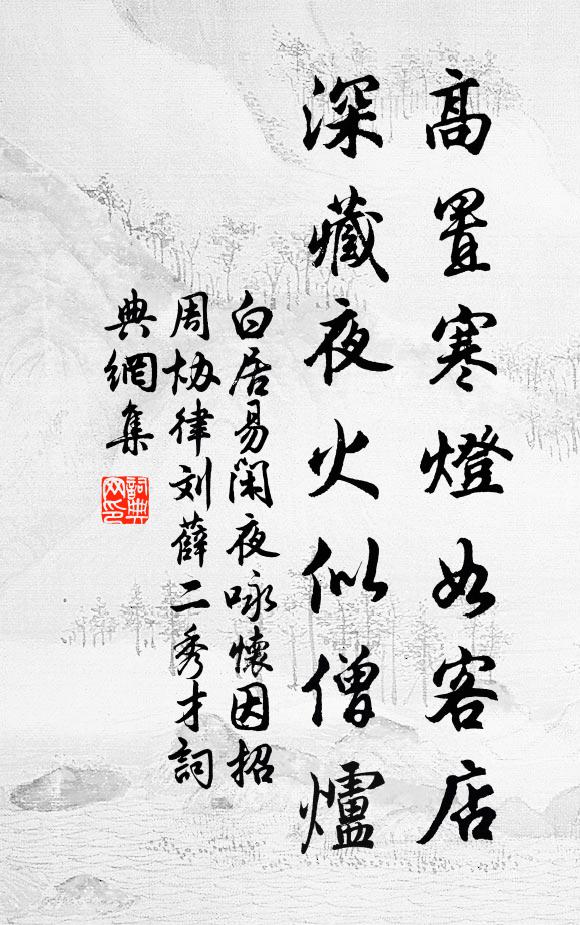 高置寒燈如客店
深藏夜火似僧爐
白居易闲夜咏懷因招
周协律刘薛二秀才詞
典網集
詞典
网印